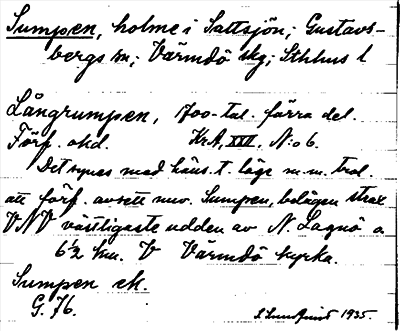 Sumpen, holme i Saltsjön; Gustavs-
bergs sn; Värmdö skg; Sthlms l
Långrumpen, 1700-tal. förra del.
Förf. okd. KrA, XXII. N:o 6.
Det synes med häns. t. läge m.m. trol.
att förf. avsett nuv. Sumpen, belägen strax
VNV västligaste udden av N. Lagnö o
6½ km. V Värmdö kyrka.
Sumpen ek.
G. 76. 1935.